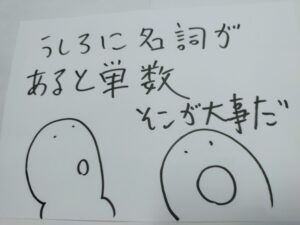 うしろに名詞が
あると単数
そこが大事だ